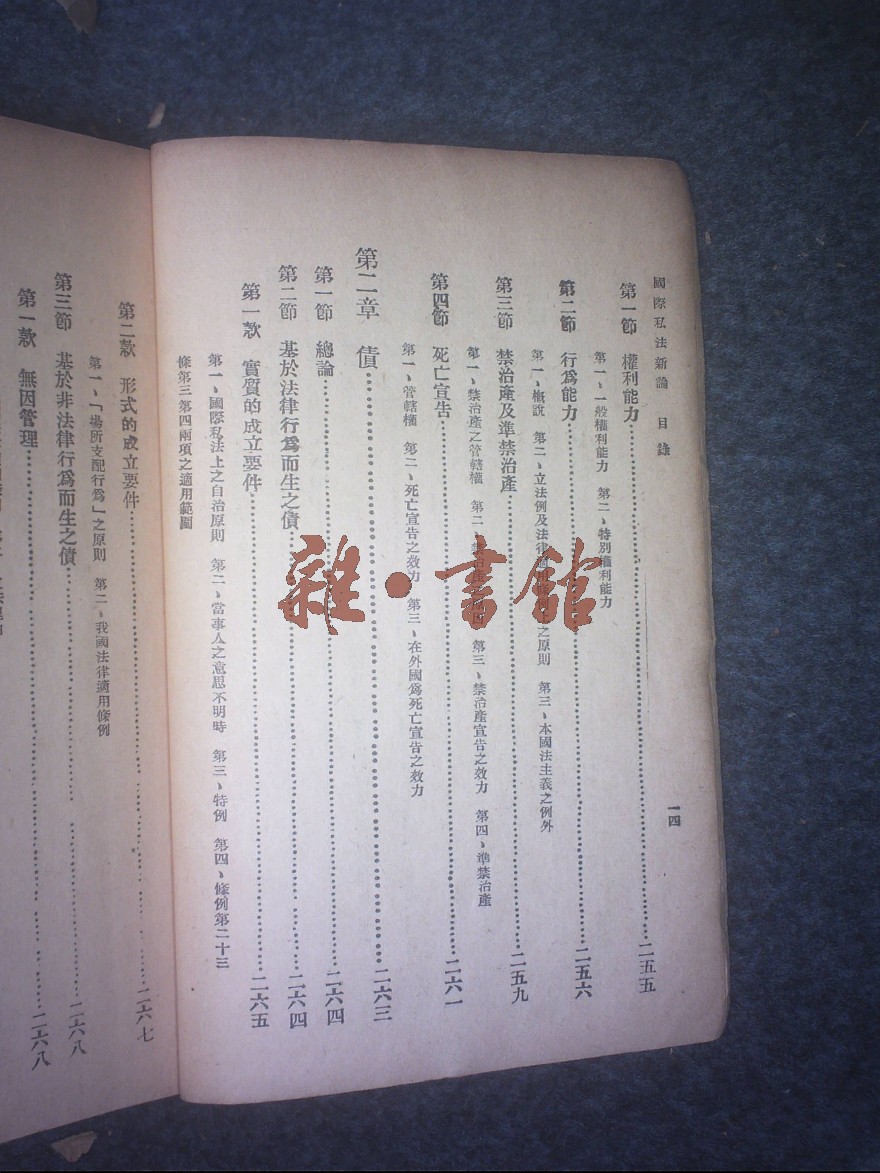 國際私法新論　目錄　一四
第一節　權利能力…………二五五
第一、一般權利能力　第二、特別權利能力
第二節　行爲能力…………二五六
第一、槪說　第二、立法例及法律適用條例上之原則　第三、本國法主義之例外
第三節　禁治產及準禁治產…………二五九
第一、禁治產之管轄權　第二、禁治產之原因　第三、禁治產宣告之效力　第四、準禁治產
第四節　死亡宣告…………二六一
第一、管轄權　第二、死亡宣告之效力　第三、在外國爲死亡宣告之效力
第二章　債…………二六三
第一節　總論…………二六四
第二節　基於法律行爲而生之債…………二六四
第一款　實質的成立要件…………二六五
第一、國際私法上之自治原則　第二、當事人之意思不明時　第三、特例　第四、條例第二十三
條第三第四兩項之適用範圍
第二款　形式的成立要件…………二六七
第一、「場所支配行爲」之原則　第二、我國法律適用條例
第三節　基於非法律行爲而生之債…………二六八
第一款　無因管理…………二六八
雜·書館